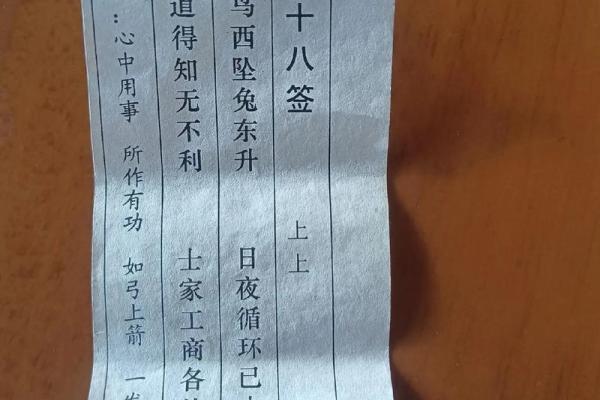 十八签 上上
鸟西坠兔东升 日夜循环已
道得知无不利 士家工商各
：心中用事 所作有功 如弓上箭 一发